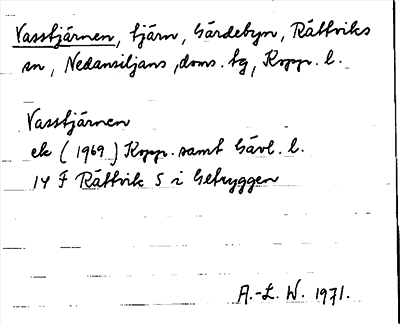 Vasstjärnen, tjärn, Gärdebyn, Rättviks
sn, Nedansiljans doms. tg, Kopp. l.
Vasstjärnen
ek (1969) Kopp. samt Gävl. l.
14 F Rättvik S i Getryggen
A.-L. W. 1971.